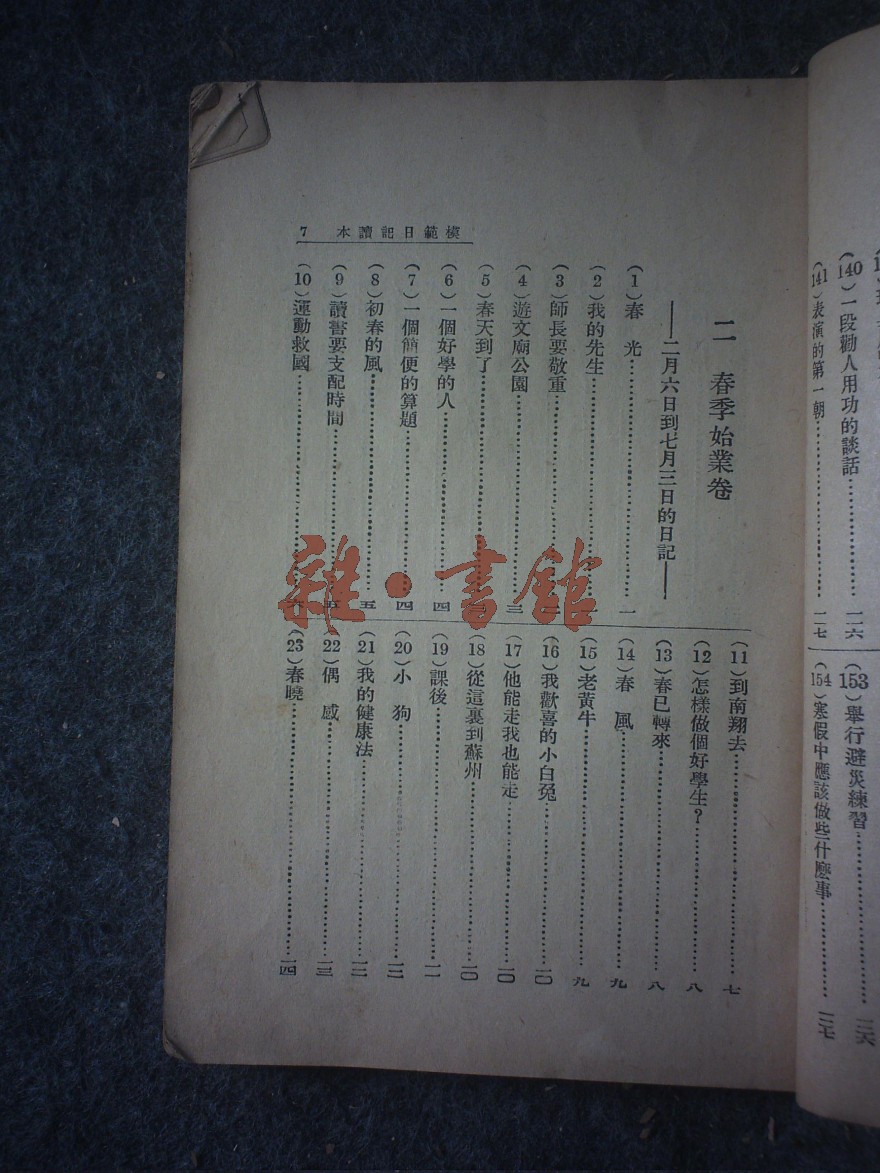 (140)一段勸人用功的談話……一二六
(141)表演的第一朝……一二七
(153)舉行避災練習……一三六
(154)寒假中應該做些什麼事……一三七
模範日記讀本 7
二 春季始業卷
——二月六日到七月三日的日記——
(1)春 光……一
(2)我的先生……一
(3)師長要敬重……二
(4)遊文廟公園……三
(5)春天到了……
(6)一個好學的人……四
(7)一個簡便的算題……四
(8)初春的風……五
(9)讀書要支配時間……五
(10)運動救國……六
(11)到南翔去……七
(12)怎樣做個好學生?……八
(13)春已轉來……八
(14)春 風……九
(15)老黃牛……九
(16)我歡喜的小白兔……一〇
(17)他能走我也能走……一〇
(18)從這裏到蘇州……一〇
(19)課後……一一
(20)小 狗……一二
(21)我的健康法……一二
(22)偶 感……一三
(23)春曉……一四
雜·書館